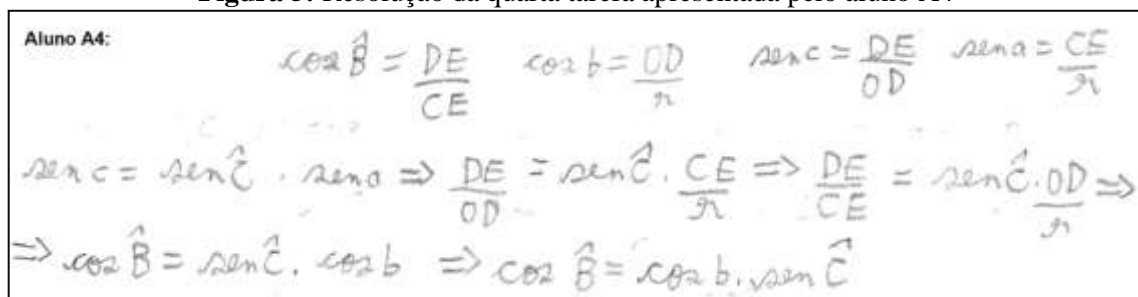 Figura 5: Resolução da quarta tarefa apresentada pelo aluno A4
Aluno A4:
cos B̂ = DE/CE cos b = OD/r sen c = DE/OD sen a = CE/r
sen c = sen Ĉ . sen a => DE/OD = sen Ĉ . CE/r => DE/CE = sen Ĉ . OD/r =>
=> cos B̂ = sen Ĉ . cos b => cos B̂ = cos b . sen Ĉ